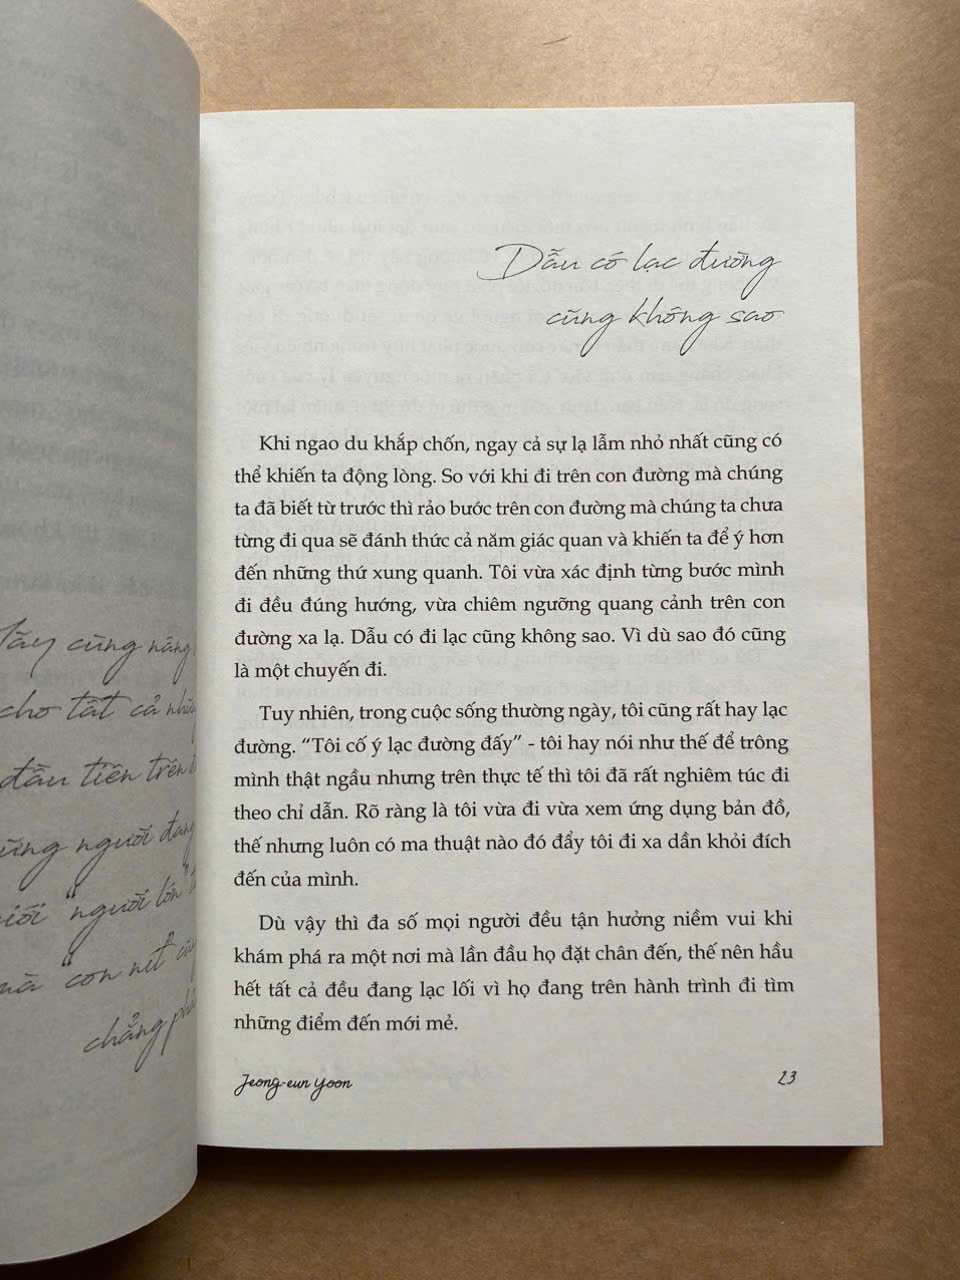 cùng nâng
cho tất cả
đầu tiên trên
người đang
"người lớn"
"con nít"
chẳng
Dẫu có lạc đường
cũng không sao
Khi ngao du khắp chốn, ngay cả sự lạ lẫm nhỏ nhất cũng có
thể khiến ta động lòng. So với khi đi trên con đường mà chúng
ta đã biết từ trước thì rảo bước trên con đường mà chúng ta chưa
từng đi qua sẽ đánh thức cả năm giác quan và khiến ta để ý hơn
đến những thứ xung quanh. Tôi vừa xác định từng bước mình
đi đều đúng hướng, vừa chiêm ngưỡng quang cảnh trên con
đường xa lạ. Dẫu có đi lạc cũng không sao. Vì dù sao đó cũng
là một chuyến đi.
Tuy nhiên, trong cuộc sống thường ngày, tôi cũng rất hay lạc
đường. "Tôi cố ý lạc đường đấy" - tôi hay nói như thế để trông
mình thật ngầu nhưng trên thực tế thì tôi đã rất nghiêm túc đi
theo chỉ dẫn. Rõ ràng là tôi vừa đi vừa xem ứng dụng bản đồ,
thế nhưng luôn có ma thuật nào đó đẩy tôi đi xa dần khỏi đích
đến của mình.
Dù vậy thì đa số mọi người đều tận hưởng niềm vui khi
khám phá ra một nơi mà lần đầu họ đặt chân đến, thế nên hầu
hết tất cả đều đang lạc lối vì họ đang trên hành trình đi tìm
những điểm đến mới mẻ.
Jeong-eun Yoon
23